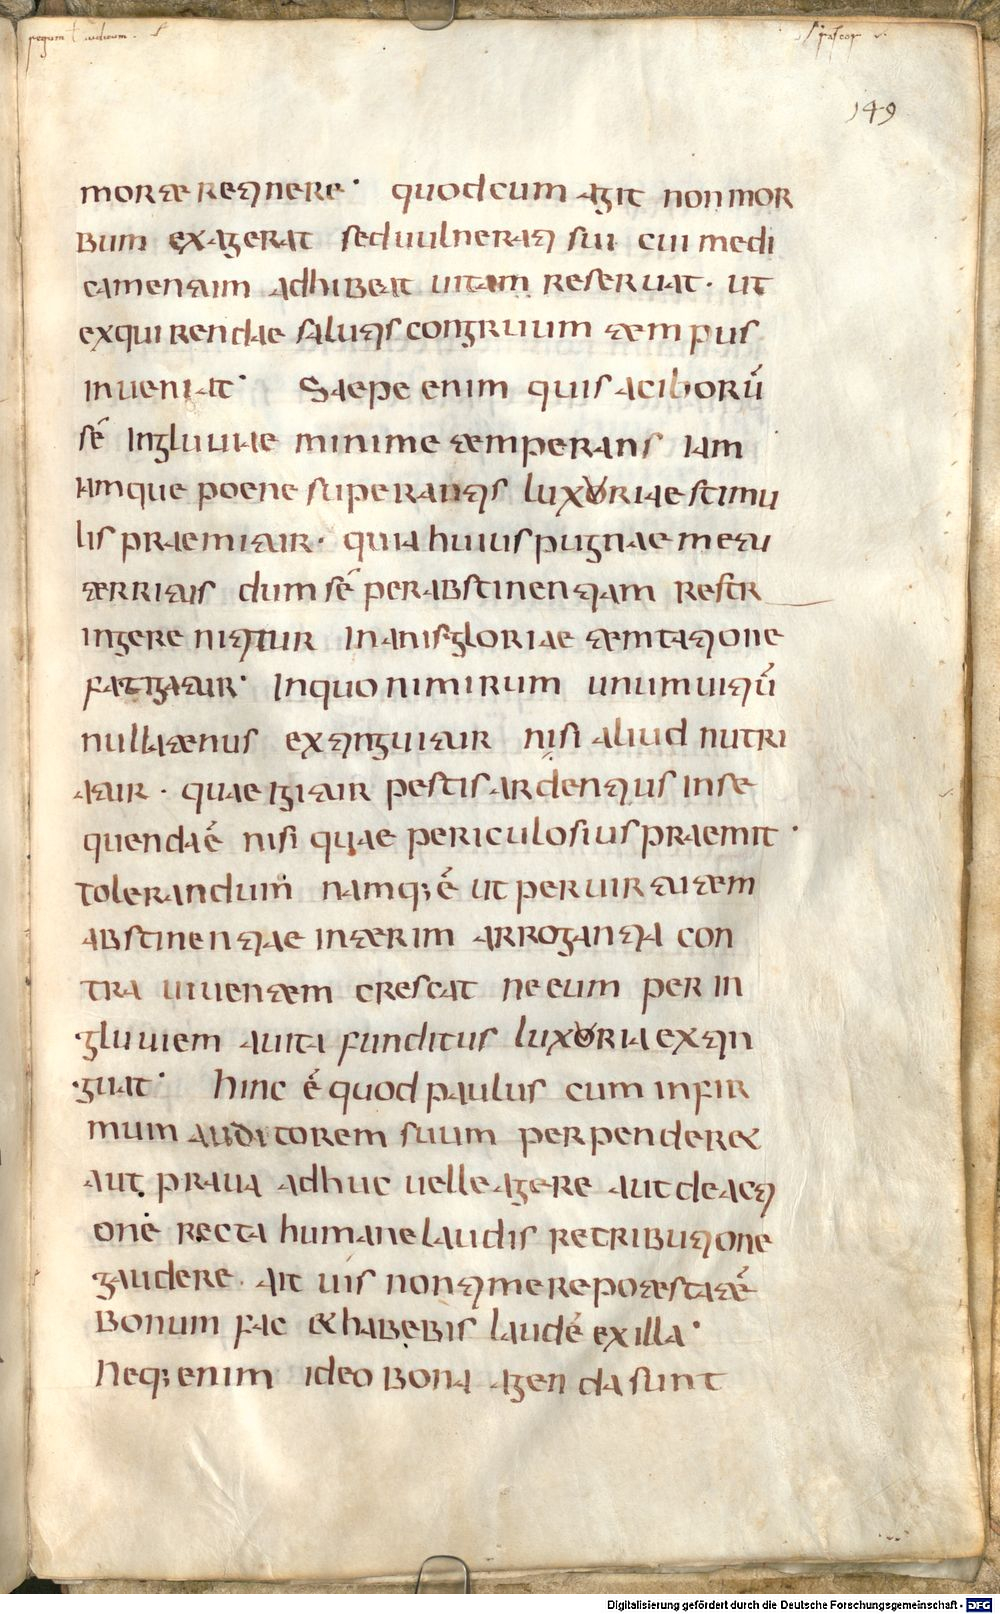 regum l iudicum
pastor
149
morte retinere· quod cum agit non mor
bum exagerat sed uulnerati sui cui medi
camentum adhibeat uitam reseruat· ut
exquirendae salutis congruum tempus
inueniat· Saepe enim quis a ciborū
sē ingluuiae minime temperans iam
iamque poene superantis luxuriae stimu
lis praemitur· quia huius pugnae metu
territus dum sē per abstinentiam restr
ingere nititur inanis gloriae temtatione
fatigatur· In quo nimirum unum uitiū
nullatenus extinguitur nisi aliud nutri
atur· quae igitur pestis ardentius inse
quenda ē nisi quae periculosius praemit·
tolerandum namq; ē ut per uirtutem
abstinentiae interim arrogantia con
tra uiuentem crescat ne eum per in
gluuiem a uita funditus luxuria extin
guat· hinc ē quod paulus cum infir
mum auditorem suum perpenderet
aut praua adhuc uelle agere aut de acti
one recta humane laudis retributione
gaudere· ait uis non timere potestatē
Bonum fac et habebis laudē ex illa·
Neq; enim ideo bona agenda sunt
Digitalisierung gefördert durch die Deutsche Forschungsgemeinschaft - DFG